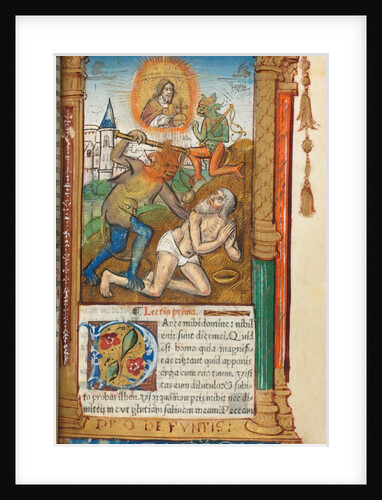 Lectio prima.
Parce mihi domine: nihil
enim sunt dies mei. Quid
est homo quia magnifi
cas eum: aut quid apponis
erga eum cor tuum. Visi
tas eum diluculo: & subi
to probas illum. Usquequo non parcis mihi nec di
mittis me ut glutiam salivam meam. Peccavi
PRO DEFVNTIS: